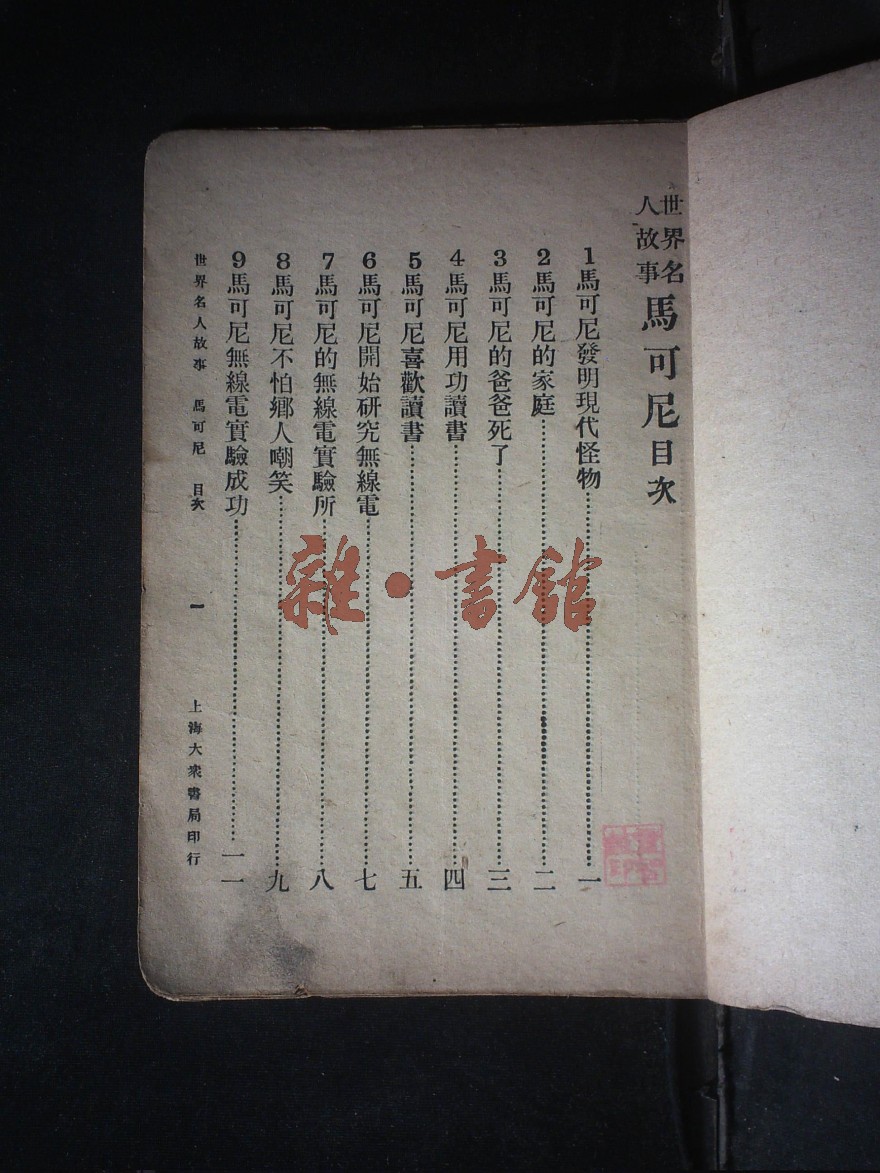 世界名人故事 馬可尼目次
1馬可尼發明現代怪物……一
2馬可尼的家庭……二
3馬可尼的爸爸死了……三
4馬可尼用功讀書……四
5馬可尼喜歡讀書……五
6馬可尼開始研究無線電……七
7馬可尼的無線電實驗所……八
8馬可尼不怕鄉人嘲笑……九
9馬可尼無線電實驗成功……一一
世界名人故事 馬可尼 目次 一 上海大衆書局印行
雜·書館